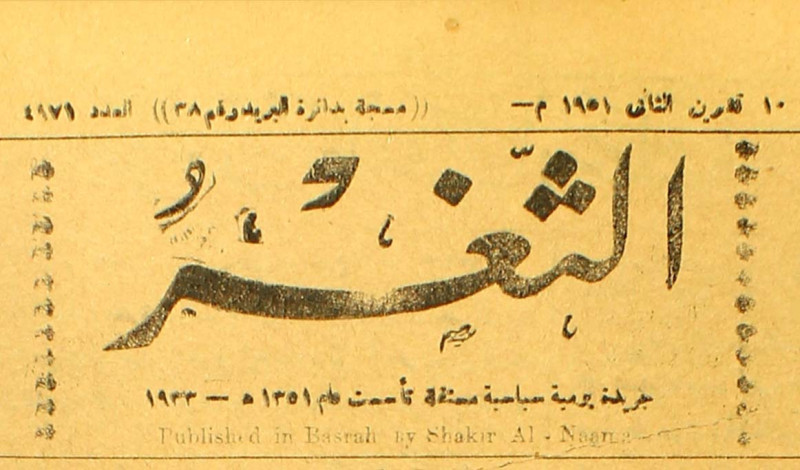 ١٠ تشرين الثاني ١٩٥١ م — ((مسجلة بدائرة البريد رقم ٣٨)) العدد ٤٩٧٩
الثَّغْرُ
جريدة يومية سياسية مستقلة تأسست عام ١٣٥١ ه — ١٩٣٣
Published in Basrah by Shakir Al - Naama